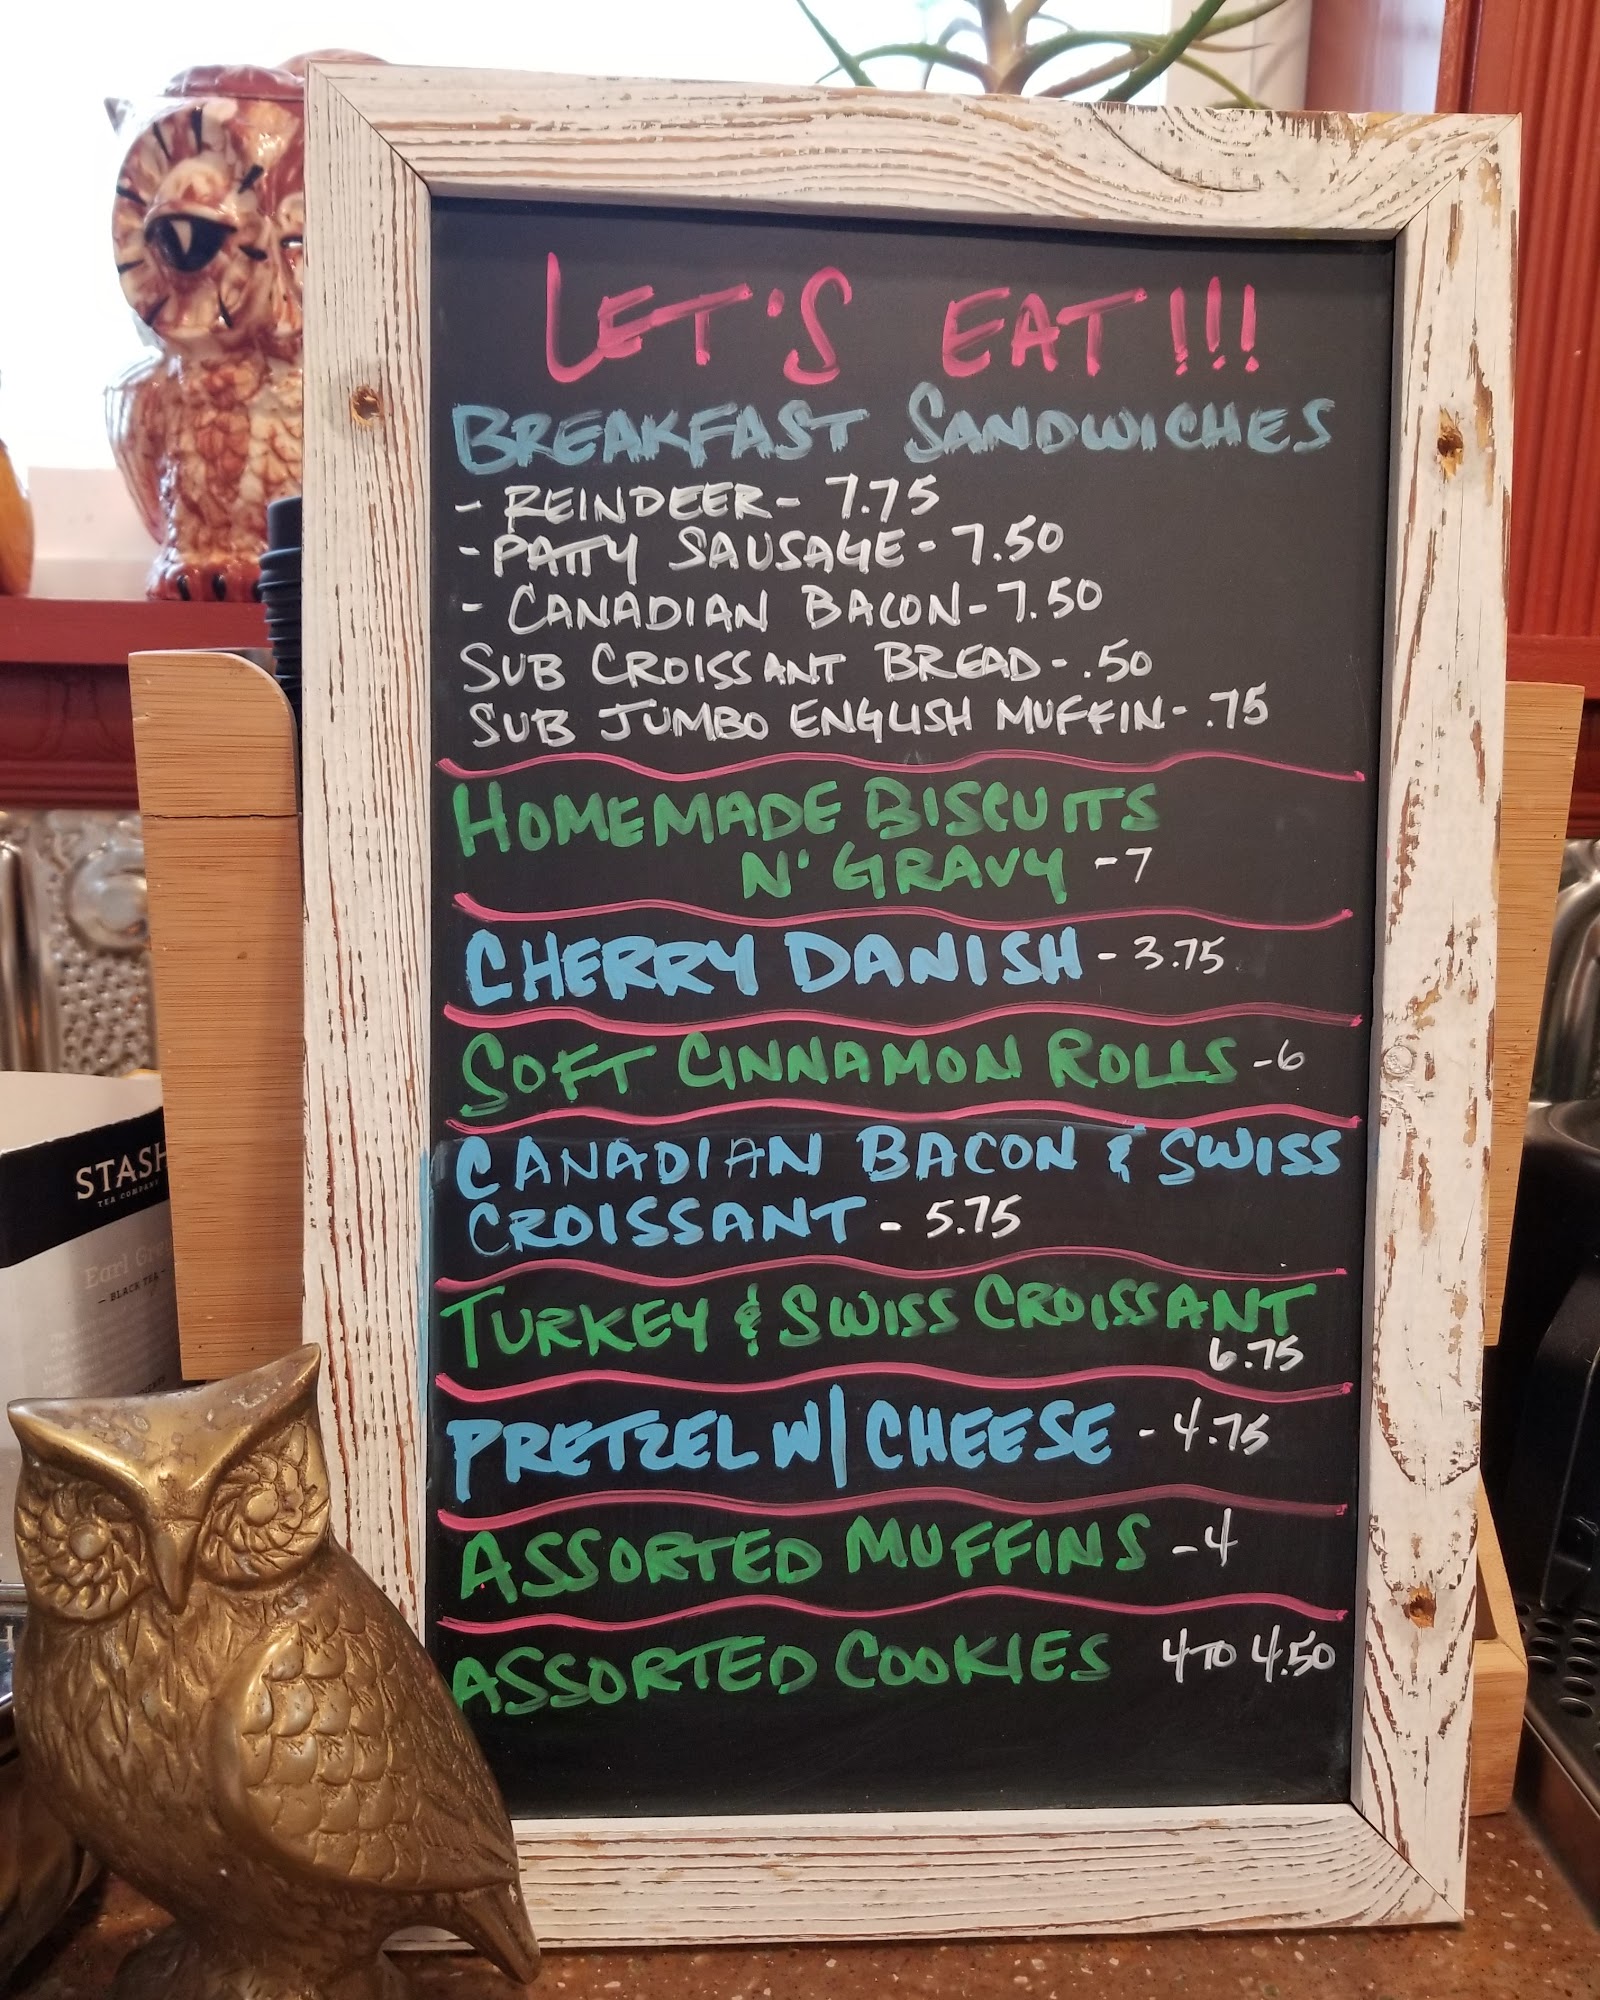 LET'S EAT!!!
BREAKFAST SANDWICHES
- REINDEER - 7.75
- PATTY SAUSAGE - 7.50
- CANADIAN BACON - 7.50
SUB CROISSANT BREAD - .50
SUB JUMBO ENGLISH MUFFIN - .75
HOMEMADE BISCUITS
N' GRAVY - 7
CHERRY DANISH - 3.75
SOFT CINNAMON ROLLS - 6
CANADIAN BACON & SWISS
CROISSANT - 5.75
TURKEY & SWISS CROISSANT
6.75
PRETZEL W/ CHEESE - 4.75
ASSORTED MUFFINS - 4
ASSORTED COOKIES 4 TO 4.50
STASH
TEA COMPANY
Earl Grey
— BLACK TEA —